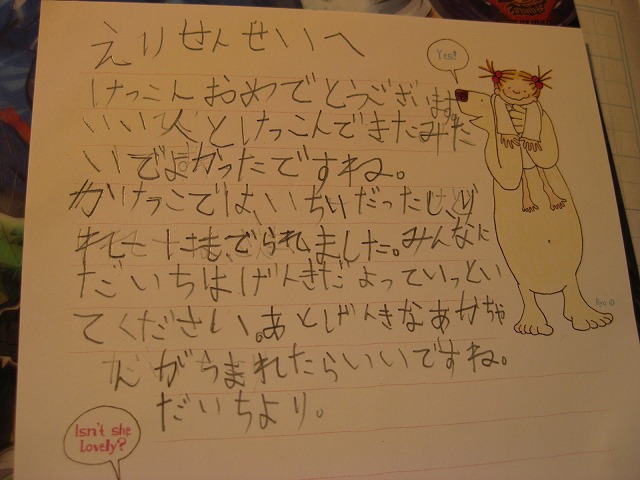 えりせんせいへ
Yes!
けっこんおめでとうございます
いい人とけっこんできたみた
いでよかったですね。
かけっこでは、いちいだったし、リ
れーにも、でられました。みんなに
だいちはげんきだよっていっとい
てください。あとげんきなあかちゃ
んがうまれたらいいですね。
だいちより。
Isn't she
Lovely?